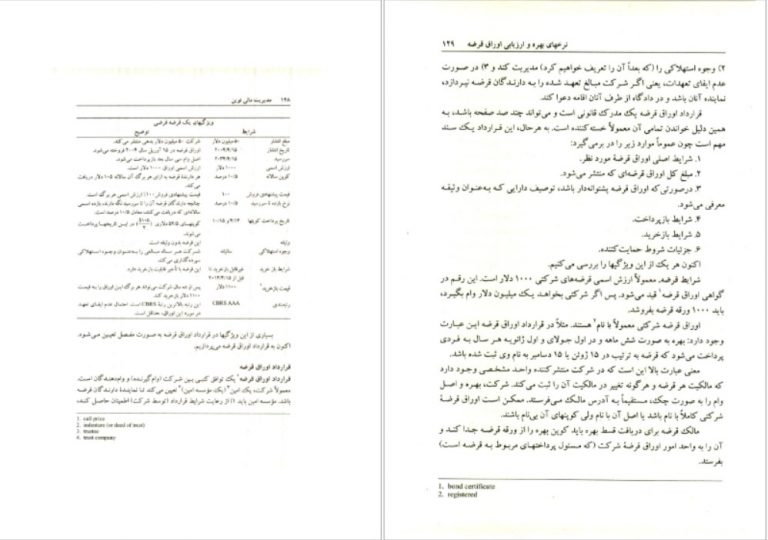 ۱۴۸ مدیریت مالی نوین
ویژگیهای یک قرضه فرضی
شرایط توضیح
مبلغ انتشار ۵۰ میلیون دلار شرکت ۵۰ میلیون دلار بدهی منتشر می‌کند.
تاریخ انتشار ۲۰۰۴/۴/۱۵ اوراق قرضه در ۱۵ آوریل سال ۲۰۰۴ فروخته می‌شود.
سررسید ۲۰۳۴/۴/۱۵ اصل وام سی سال بعد بازپرداخت می‌شود.
ارزش اسمی ۱۰۰۰ دلار ارزش اسمی اوراق ۱۰۰۰ دلار است.
کوپن سالانه ۱۰/۵ درصد هر دارندهٔ قرضه به ازای هر برگ آن سالانه ۱۰۵ دلار دریافت
می‌کند.
قیمت پیشنهادی فروش ۱۰۰ قیمت پیشنهادی فروش ۱۰۰٪ ارزش اسمی هر برگ است
نرخ بازده تا سررسید ۱۰/۵ درصد چنانچه دارندگان قرضه آن را تا سررسید نگه دارند، بازده اسمی
سالانه‌ای که دریافت می‌کنند، معادل ۱۰/۵ درصد است.
تاریخ پرداخت کوپنها ۴/۱۴ و ۱۰/۱۵ کوپنهای ۵۲/۵ دلاری در این تاریخها پرداخت
می‌شوند.
وثیقه این قرضه بدون وثیقه است.
وجوه استهلاکی سالیانه شرکت هر ساله مبالغی را به‌عنوان وجوه استهلاکی
سپرده‌گذاری می‌کند.
شرایط باز خرید غیرقابل بازخرید تا این قرضه تا ۱۰ سال غیرقابل بازخرید دارد.
قبل از ۲۰۱۴/۴/۱۵
قیمت بازخرید۱ ۱۱۰۰ دلار پس از ده سال شرکت می‌تواند هر برگ این اوراق را به قیمت
۱۱۰۰ دلار بازخرید کند.
رتبه‌بندی CBRS AAA این رتبه بالاترین رتبهٔ CBRS است. احتمال عدم ایفای تعهد
در مورد این اوراق، حداقل است.
بسیاری از این ویژگیها در قرارداد اوراق قرضه به صورت مفصل تعیین می‌شود.
اکنون به قرارداد اوراق قرضه می‌پردازیم.
قرارداد اوراق قرضه
قرارداد اوراق قرضه۲ یک توافق کتبی بین شرکت (وام‌گیرنده) و وام‌دهندگان است.
معمولاً شرکت، یک امین۳ (یک مؤسسه امین)۴ تعیین می‌کند تا نمایندهٔ دارندگان قرضه
باشد. مؤسسه امین باید ۱) از رعایت شرایط قرارداد (توسط شرکت) اطمینان حاصل کند،
1. call price
2. indenture (or deed of trust)
3. trustee
4. trust company
نرخهای بهره و ارزیابی اوراق قرضه ۱۴۹
۲) وجوه استهلاکی را (که بعداً آن را تعریف خواهیم کرد) مدیریت کند و ۳) در صورت
عدم ایفای تعهدات، یعنی اگر شرکت مبالغ تعهد شده را به دارندگان قرضه نپردازد،
نماینده آنان باشد و در دادگاه از طرف آنان اقامه دعوا کند.
قرارداد اوراق قرضه یک مدرک قانونی است و می‌تواند چند صد صفحه باشد، به
همین دلیل خواندن تمامی آن معمولاً خسته کننده است. به هرحال، این قرارداد یک سند
مهم است چون عموماً موارد زیر را در برمی‌گیرد:
۱. شرایط اصلی اوراق قرضهٔ مورد نظر.
۲. مبلغ کل اوراق قرضه‌ای که منتشر می‌شود.
۳. درصورتی‌که اوراق قرضه پشتوانه‌دار باشد، توصیف دارایی که به‌عنوان وثیقه
معرفی می‌شود.
۴. شرایط بازپرداخت.
۵. شرایط بازخرید.
۶. جزئیات شروط حمایت‌کننده.
اکنون هر یک از این ویژگیها را بررسی می‌کنیم.
شرایط قرضه. معمولاً ارزش اسمی قرضه‌های شرکتی ۱۰۰۰ دلار است. این رقم در
گواهی اوراق قرضه۱ قید می‌شود. پس اگر شرکتی بخواهد یک میلیون دلار وام بگیرد،
باید ۱۰۰۰ ورقه قرضه بفروشد.
اوراق قرضه شرکتی معمولاً با نام۲ هستند. مثلاً در قرارداد اوراق قرضه این عبارت
وجود دارد: بهره به صورت شش ماهه و در اول جولای و اول ژانویه هر سال به فردی
پرداخت می‌شود که قرضه به ترتیب در ۱۵ ژوئن یا ۱۵ دسامبر به نام وی ثبت شده باشد.
معنی عبارت بالا این است که در شرکت منتشرکننده واحد مشخصی وجود دارد
که مالکیت هر قرضه و هرگونه تغییر در مالکیت آن را ثبت می‌کند. شرکت، بهره و اصل
وام را به صورت چک، مستقیماً به آدرس مالک می‌فرستد. ممکن است اوراق قرضهٔ
شرکتی کاملاً با نام باشد یا اصل آن با نام ولی کوپنهای آن بی‌نام باشند.
مالک قرضه برای دریافت قسط بهره باید کوپن بهره را از ورقه قرضه جدا کند و
آن را به واحد امور اوراق قرضهٔ شرکت (که مسئول پرداختهای مربوط به قرضه است)
بفرستد.
1. bond certificate
2. registered